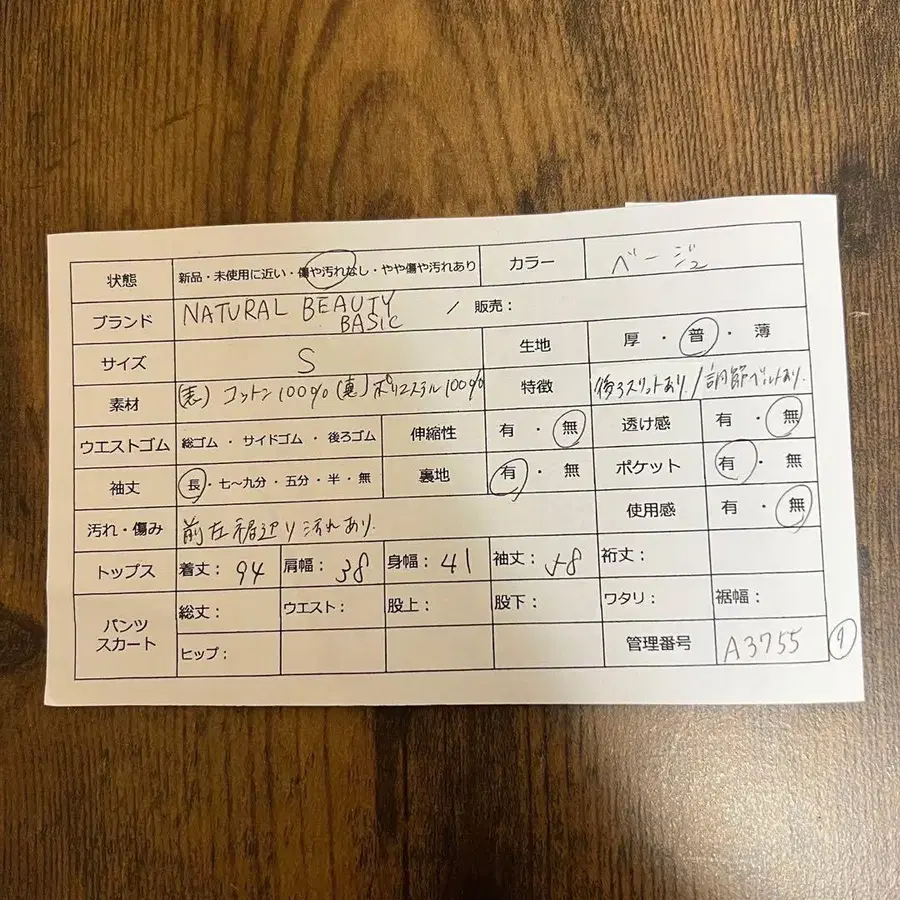 状態 新品・未使用に近い・傷や汚れなし・やや傷や汚れあり カラー ベージュ
ブランド NATURAL BEAUTY BASIC / 販売：
サイズ S 生地 厚・普・薄
素材 (表)コットン100% (裏)ポリエステル100% 特徴 後ろスリットあり/調節ベルトあり.
ウエストゴム 総ゴム・サイドゴム・後ろゴム 伸縮性 有・無 透け感 有・無
袖丈 長・七〜九分・五分・半・無 裏地 有・無 ポケット 有・無
汚れ・傷み 前左裾辺り汚れあり. 使用感 有・無
トップス 着丈：94 肩幅：38 身幅：41 袖丈：58 裄丈：
パンツ スカート 総丈： ウエスト： 股上： 股下： ワタリ： 裾幅：
ヒップ： 管理番号 A3755